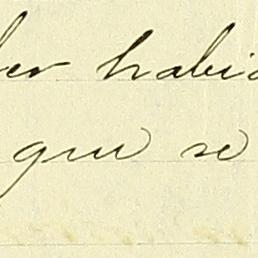 ber habi
que se